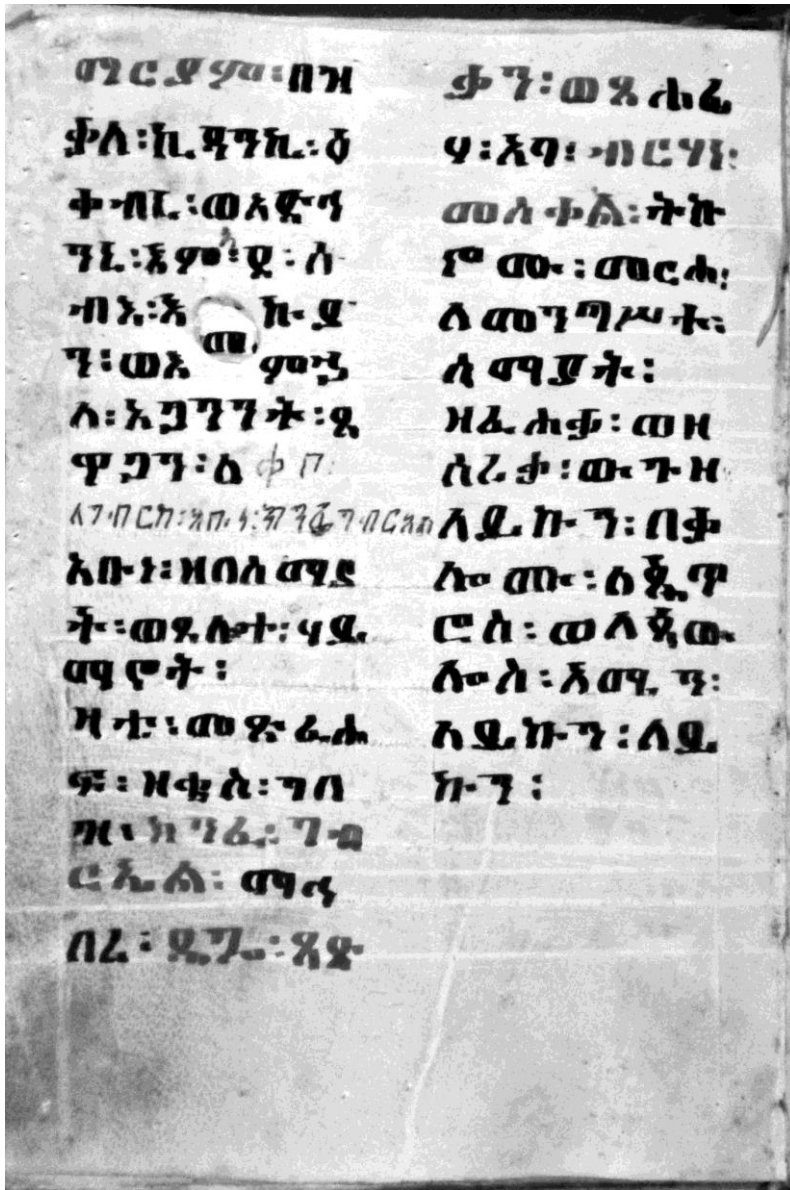 ማርያም፡በዝ
ቃለ፡ኪዳንኪ፡ዕ
ቀብኒ፡ወአድኅ
ንኒ፡እምኔ፡ሰ
ብእ፡እኩያ
ን፡ወእምኵ
ለ፡አጋንንት፡ጼ
ዋጋን፡ለ
ለገብርከ፡
አቡነ፡ዘበሰማያ
ት፡ወጸሎተ፡ሃይ
ማኖት፡
ዛቲ፡መጽሐ
ፍ፡ዘቂስ፡ገብ
ክንፈ፡ገብ
ርኤል፡ማኅ
በረ፡ጻድ
ቃን፡ወጸሐፊ
ሃ፡አባ፡ብርሃነ፡
መስቀል፡ትኩ
ኖሙ፡መርሐ፡
ለመንግሥተ፡
ሰማያት፡
ዘፈሐቃ፡ወዘ
ሰረቃ፡ውጉዘ
ለይኩን፡በቃ
ሎሙ፡ለጴጥ
ሮስ፡ወለጳው
ሎስ፡አሜን፡
ለይኩን፡ለይ
ኩን፡